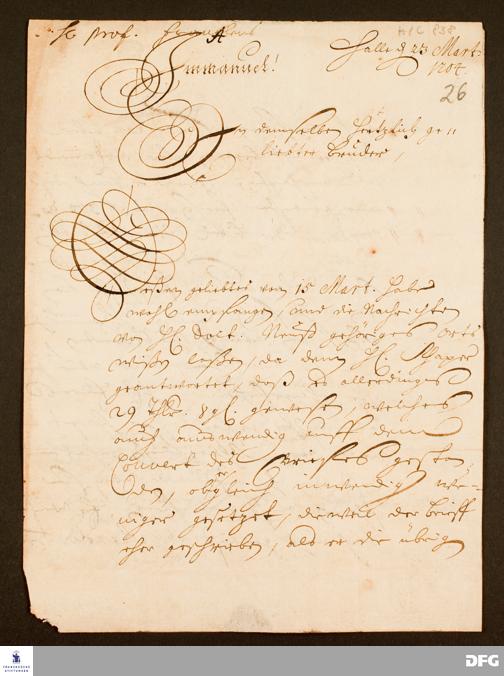 H. Prof. Franckens
A
A I C 838
Halle d 23 Mart.
1704.
Emmanuel!
26
In demselben hertzlich ge=
liebter Bruder,
Deßen geliebtes vom 15 Mart. habe
wohl empfangen, und die Nachrichten
von H. Dolt. Neuß gehöriges orts
wißen laßen, da denn H.
geantwortet, daß es allerdings
29 Thlr. 8 gl. gewesen, welches
auch auswendig auff dem
Couvert des Briefes gestan=
den, obgleich inwendig we=
niger gesetzet, dieweil der brieff
eher geschrieben, als er die übrig
FRANCKESCHE
STIFTUNGEN
DFG